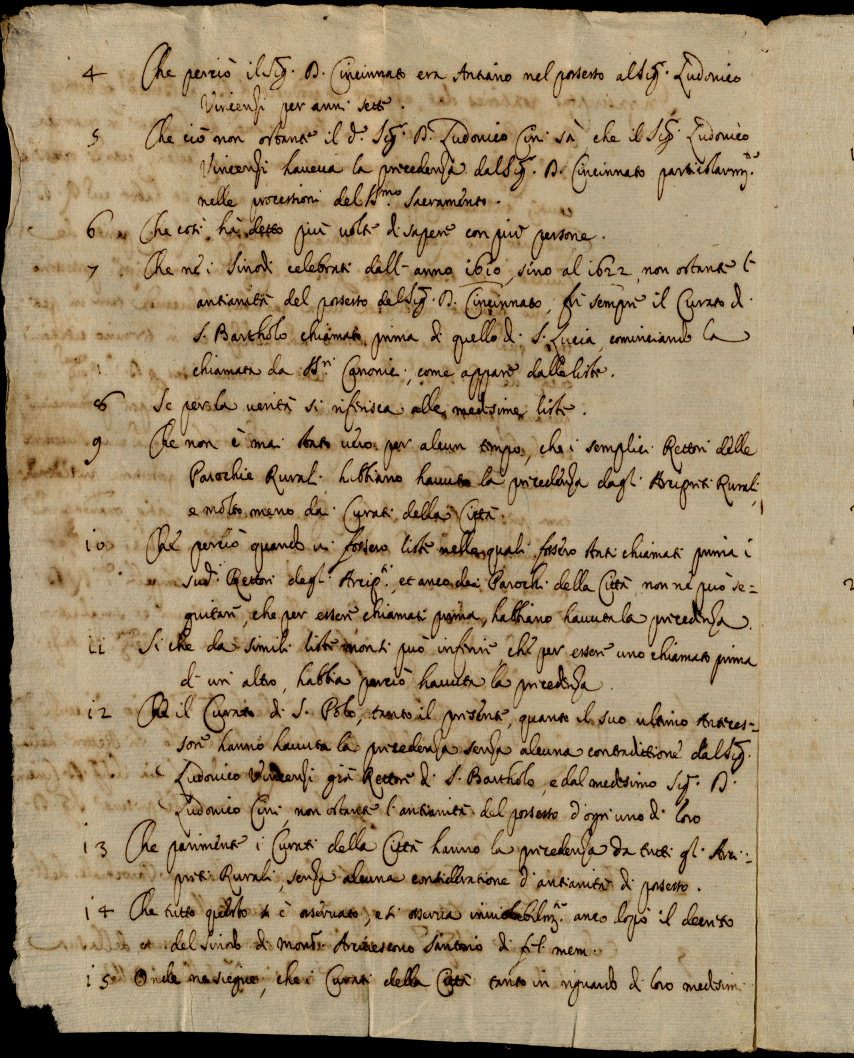 4 Che perciò il Sig.r D. Cincinnato era Antiano nel possesso al Sig.r Ludovico
Vincenzi per anni sette.
5 Che ciò non ostante il d.o Sig.r D. Ludovico Cini sà che il Sig.r Ludovico
Vincenzi haveva la precedenza dal Sig.r D. Cincinnato particolarm.te
nelle processioni del SS.mo Sacramento.
6 Che così hà detto più volte di sapere con più persone.
7 Che ne i Sinodi celebrati dall'anno 1610, sino al 1622, non ostante l'
antianità del possesso del Sig.r D. Cincinnato, fù sempre il Curato di
S. Bartholo chiamato prima di quello di S. Lucia, cominciando la
chiamata da SS.ri Canonici, come appare dalle liste.
8 Se per la verità si riferisca alle medesime liste.
9 Che non è mai stato vero per alcun tempo, che i semplici Rettori delle
Parochie Rurali, habbiano havuto la precedenza dagl'Arcipreti Rurali,
e molto meno da i Curati della Città.
10 Che perciò quando vi fossero liste nelle quali fossero stati chiamati prima i
sud.i Rettori degl'Arcip.ti, et anco dei Parochi della Città, non ne può se=
guitare, che per essere chiamati prima, habbiano havuta la precedenza.
11 Si che da simili liste non si può inferire, che per essere uno chiamato prima
di un altro, habbia perciò havuta la precedenza.
12 Che il Curato di S. Polo, tanto il presente, quanto il suo ultimo Anteces=
sore hanno havuta la precedenza senza alcuna contradittione dal Sig.r
Ludovico Vincenzi già Rettore di S. Bartholo, e dal medesimo Sig.r D.
Ludovico Cini, non ostante l'antianità del possesso d'ogni uno di loro
13 Che parimente i Curati della Città hanno la precedenza da tutti gl'Arci=
preti Rurali, senza alcuna consideratione d'antianità di possesso.
14 Che tutto questo si è osservato, e si osserva inviolabilm.te anco dopo il decreto
del sinodo di Mons.r Arcivescovo Santorio di fel. mem.
15 Onde ne siegue, che i Curati della Città tanto in riguardo di loro medesimi